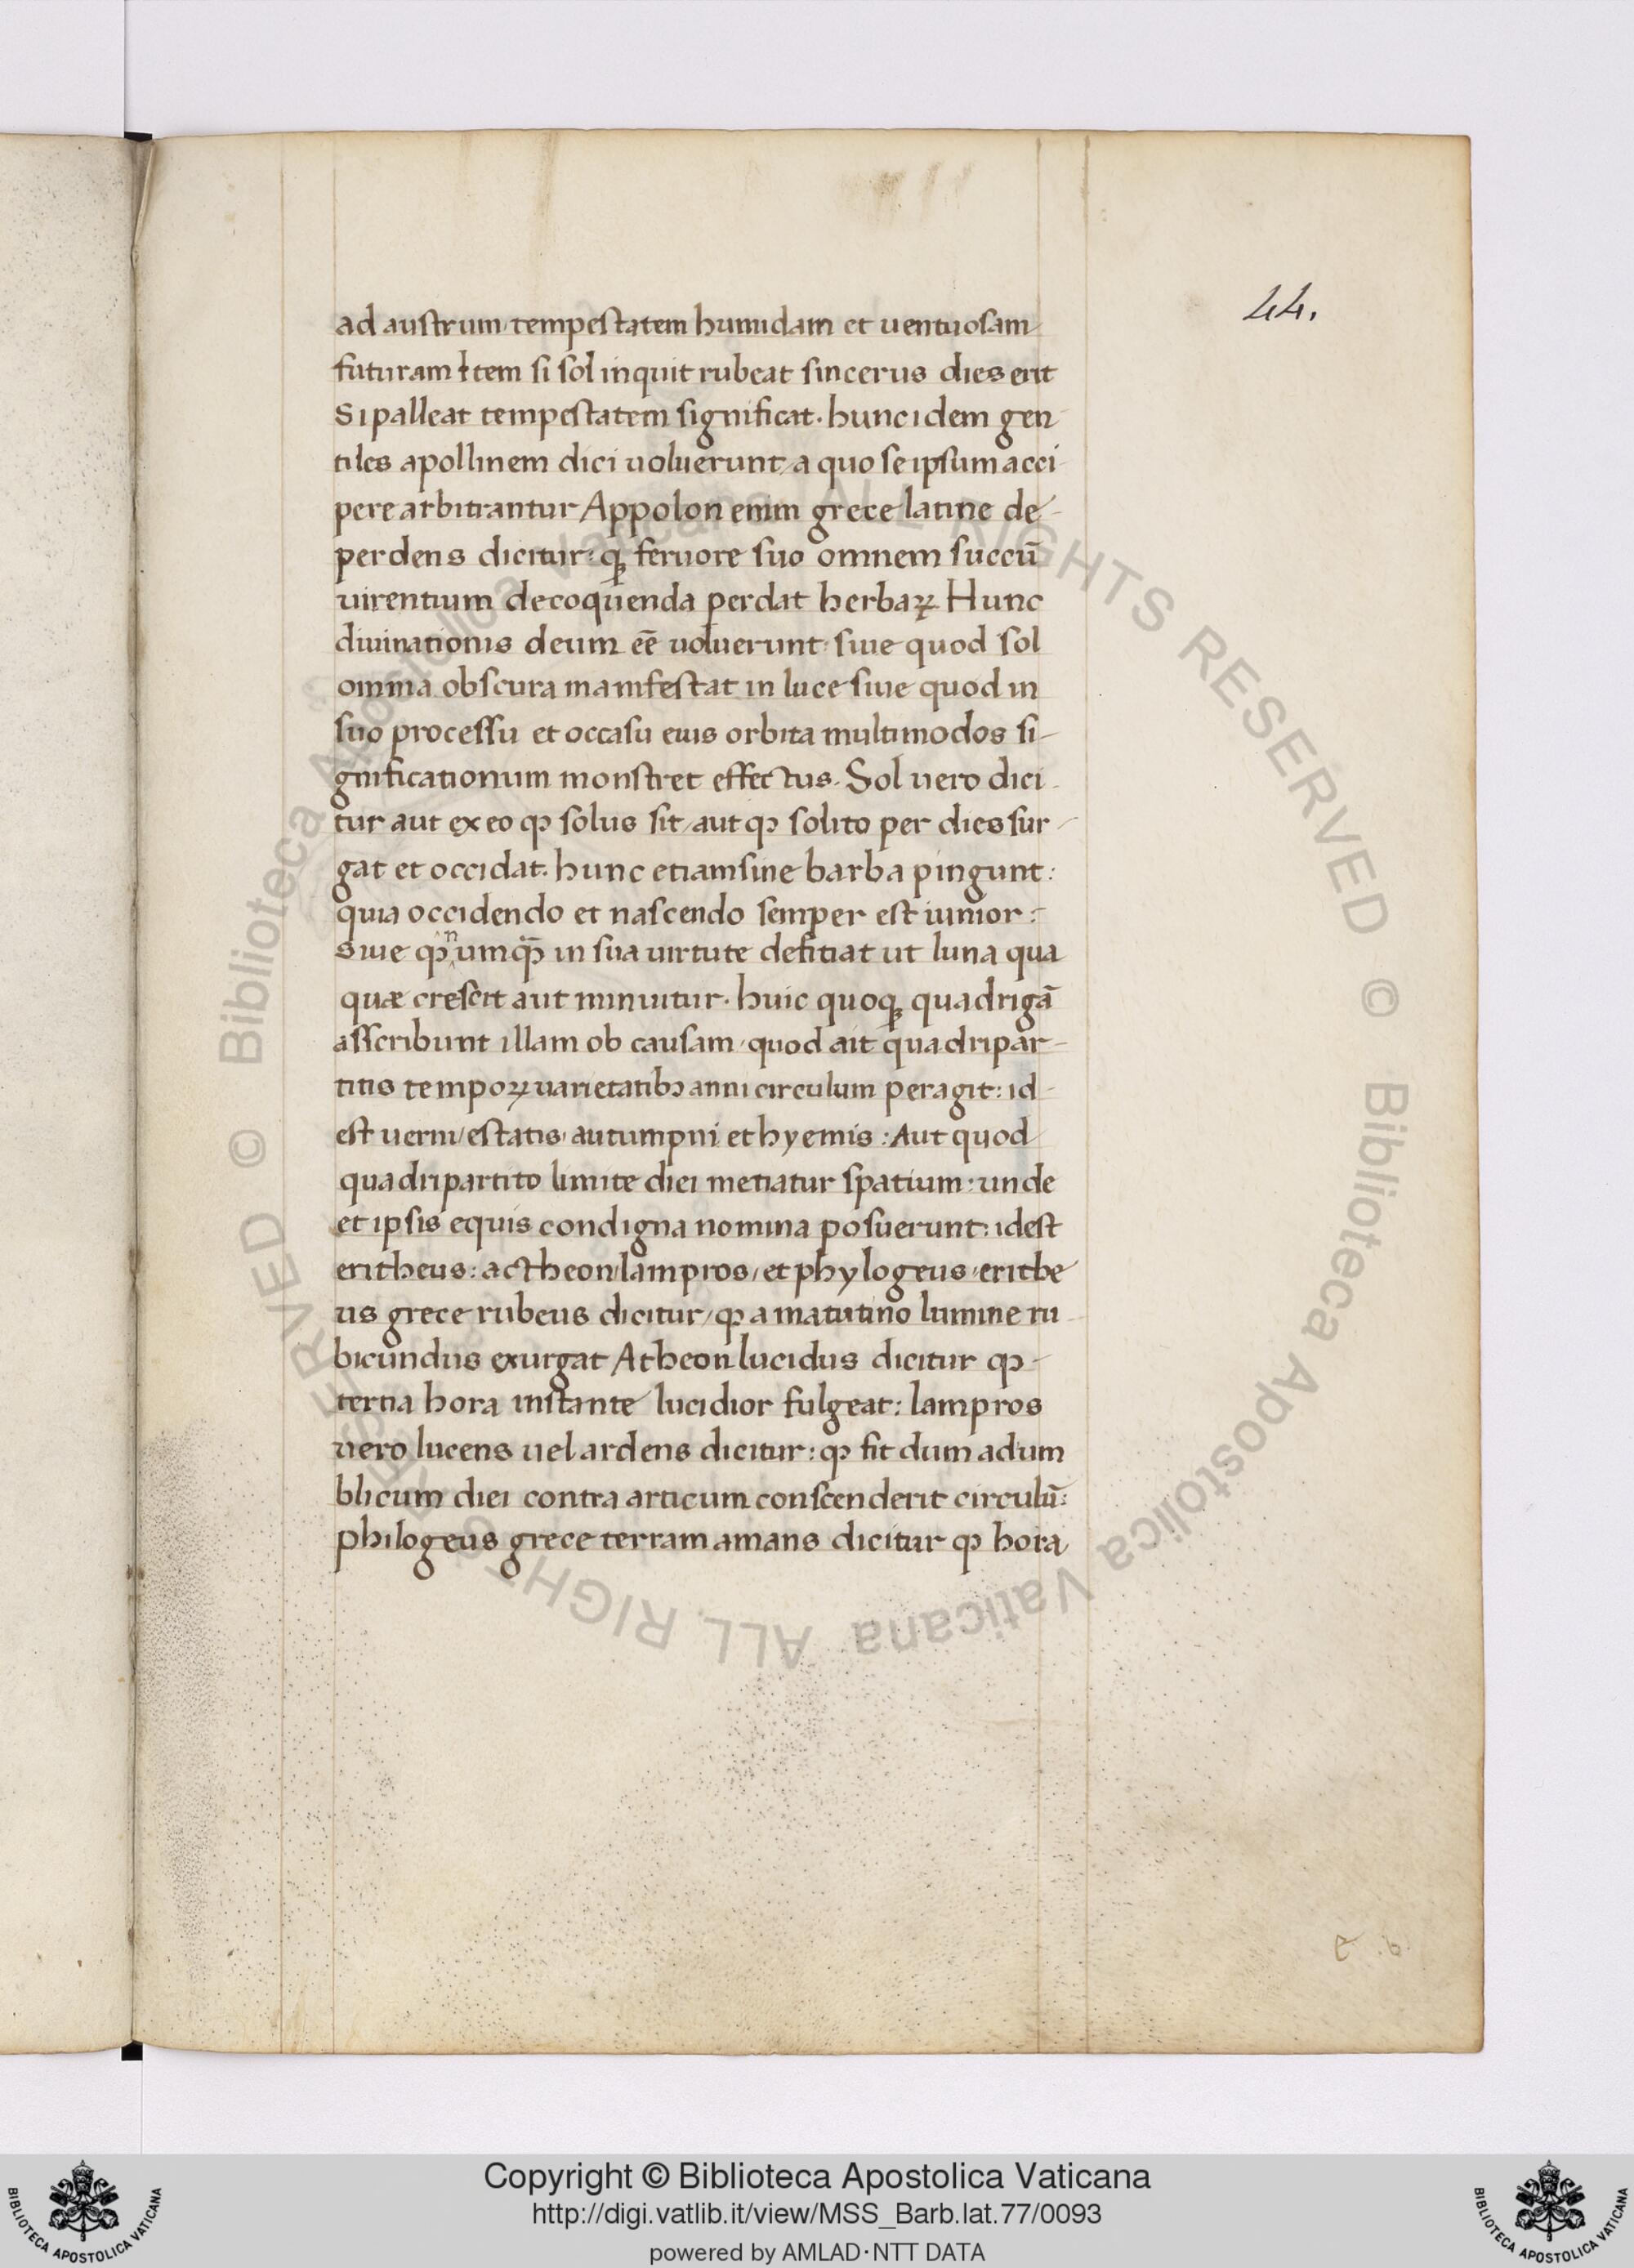 44.
ad austrum tempestatem humidam et uentuosam
futuram Item si sol inquit rubeat sincerus dies erit
Si palleat tempestatem significat. hunc idem gen
tiles apollinem dici uoluerunt / a quo se ipsum acci
pere arbitrantur Appolon enim grece latine de-
perdens dicitur: qꝫ feruore suo omnem succū
uirentium decoquenda perdat herbaꝝ Hunc
diuinationis deum eē uoluerunt siue quod sol
omnia obscura manifestat in luce siue quod in
suo processu et occasu eius orbita multimodos si-
gnificationum monstret effectus. Sol uero dici-
tur aut ex eo ꝙ solus sit / aut ꝙ solito per dies sur-
gat et occidat. hunc etiam sine barba pingunt:
quia occidendo et nascendo semper est iunior:-
siue ꝙ numꝙ̄ in sua uirtute defitiat ut luna qua
quæ crescit aut minuitur. huic quoqꝫ quadrigā
asscribunt illam ob causam / quod ait quadripar-
titis tempoꝝ uarietatibꝫ anni circulum peragit: id-
est uerni / estatis / autumpni et hyemis: Aut quod
quadripartito limite diei metiatur spatium: unde
et ipsis equis condigna nomina posuerunt: idest
eritheus: actheon / lampros / et phylogeus / erithe
us grece rubeus dicitur / ꝙ a matutino lumine ru-
bicundus exurgat Atheon lucidus dicitur ꝙ-
tertia hora instante lucidior fulgeat: lampros
uero lucens uel ardens dicitur: ꝙ fit dum ad um
blicum diei contra articum conscenderit circulū:
philogeus grece terram amans dicitur ꝙ hora
e .6.
Copyright © Biblioteca Apostolica Vaticana
http://digi.vatlib.it/view/MSS_Barb.lat.77/0093
powered by AMLAD·NTT DATA
BIBLIOTECA APOSTOLICA VATICANA
BIBLIOTECA APOSTOLICA VATICANA
© Biblioteca Apostolica Vaticana ALL RIGHTS RESERVED © Biblioteca Apostolica Vaticana ALL RIGHTS RESERVED